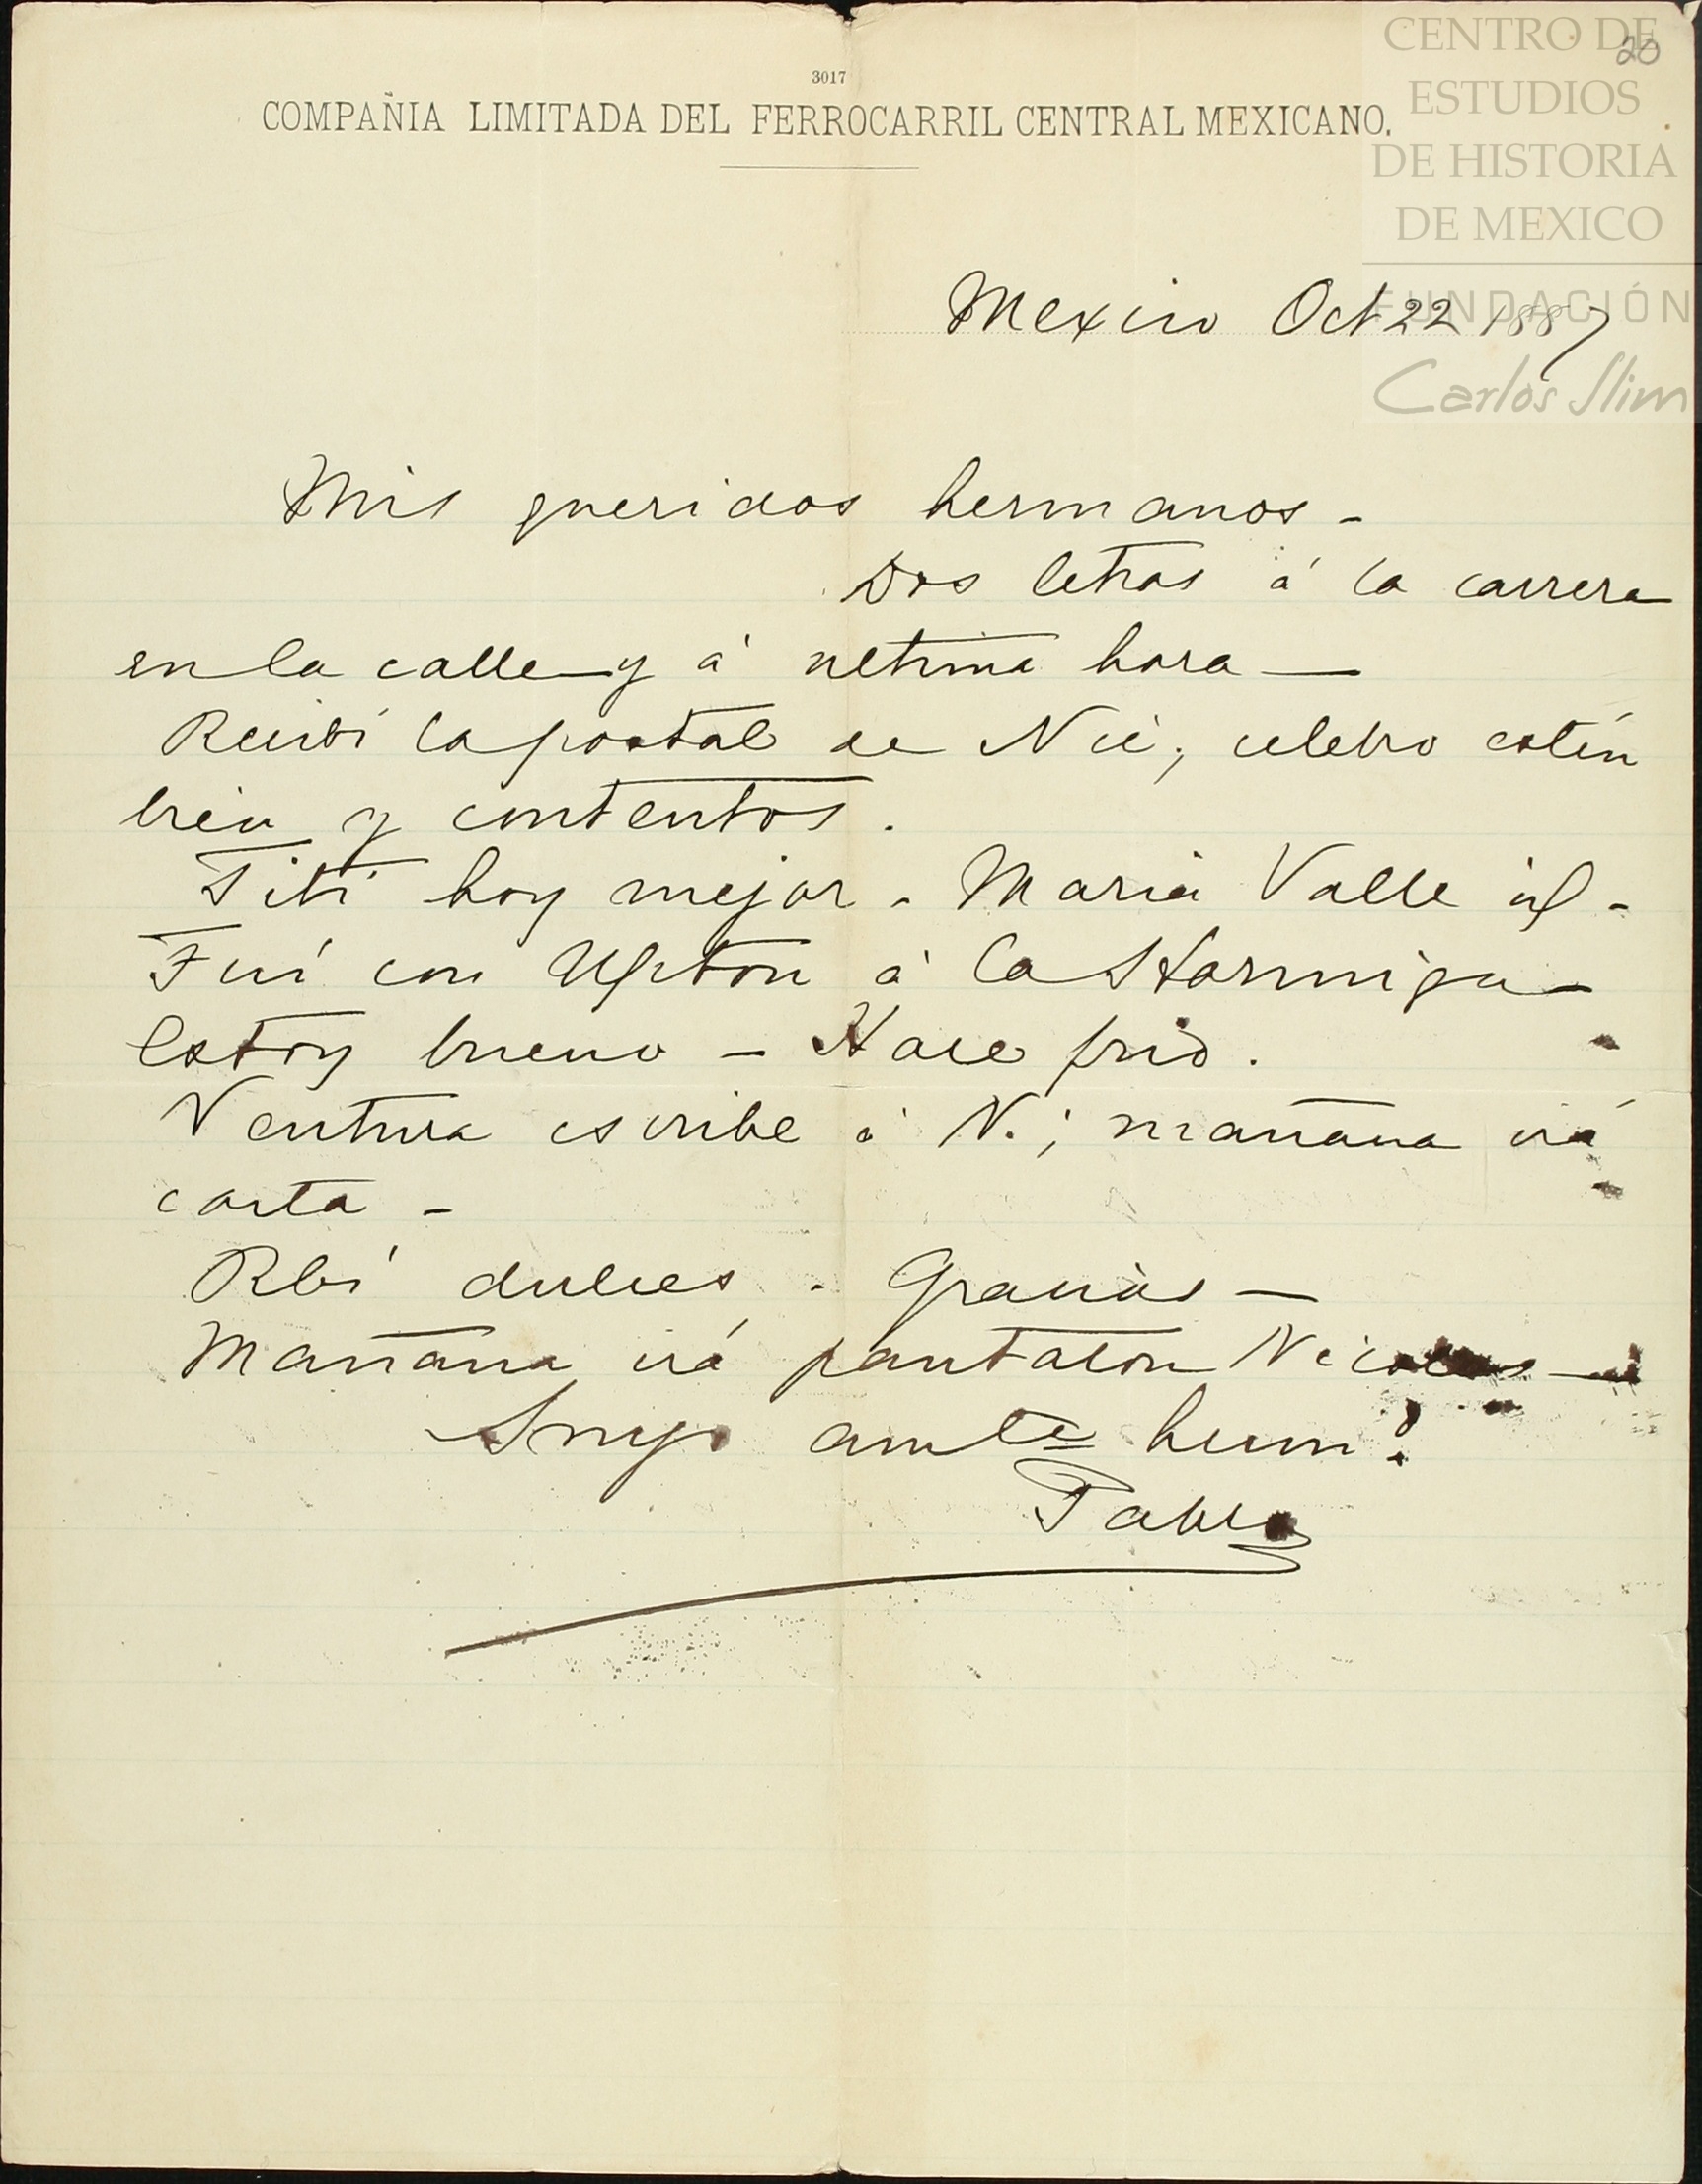 CENTRO DE
ESTUDIOS
DE HISTORIA
DE MEXICO
FUNDACIÓN
Carlos Slim
20
3017
COMPAÑIA LIMITADA DEL FERROCARRIL CENTRAL MEXICANO.
Mexico Oct 22 1887
Mis queridos hermanos -
Dos letras á la carrera
en la calle y á ultima hora —
Recibí la postal de Nic; celebro estén
bien y contentos.
Titi hoy mejor. Maria Valle id -
Fuí con Upton á la Hormiga —
Estoy bueno - Hace frio.
Ventura escribe á N.; mañana irá
carta -
Rbí dulces. Gracias —
Mañana irá pantalon Nicolas —
Suyo amte hermo
Pablo